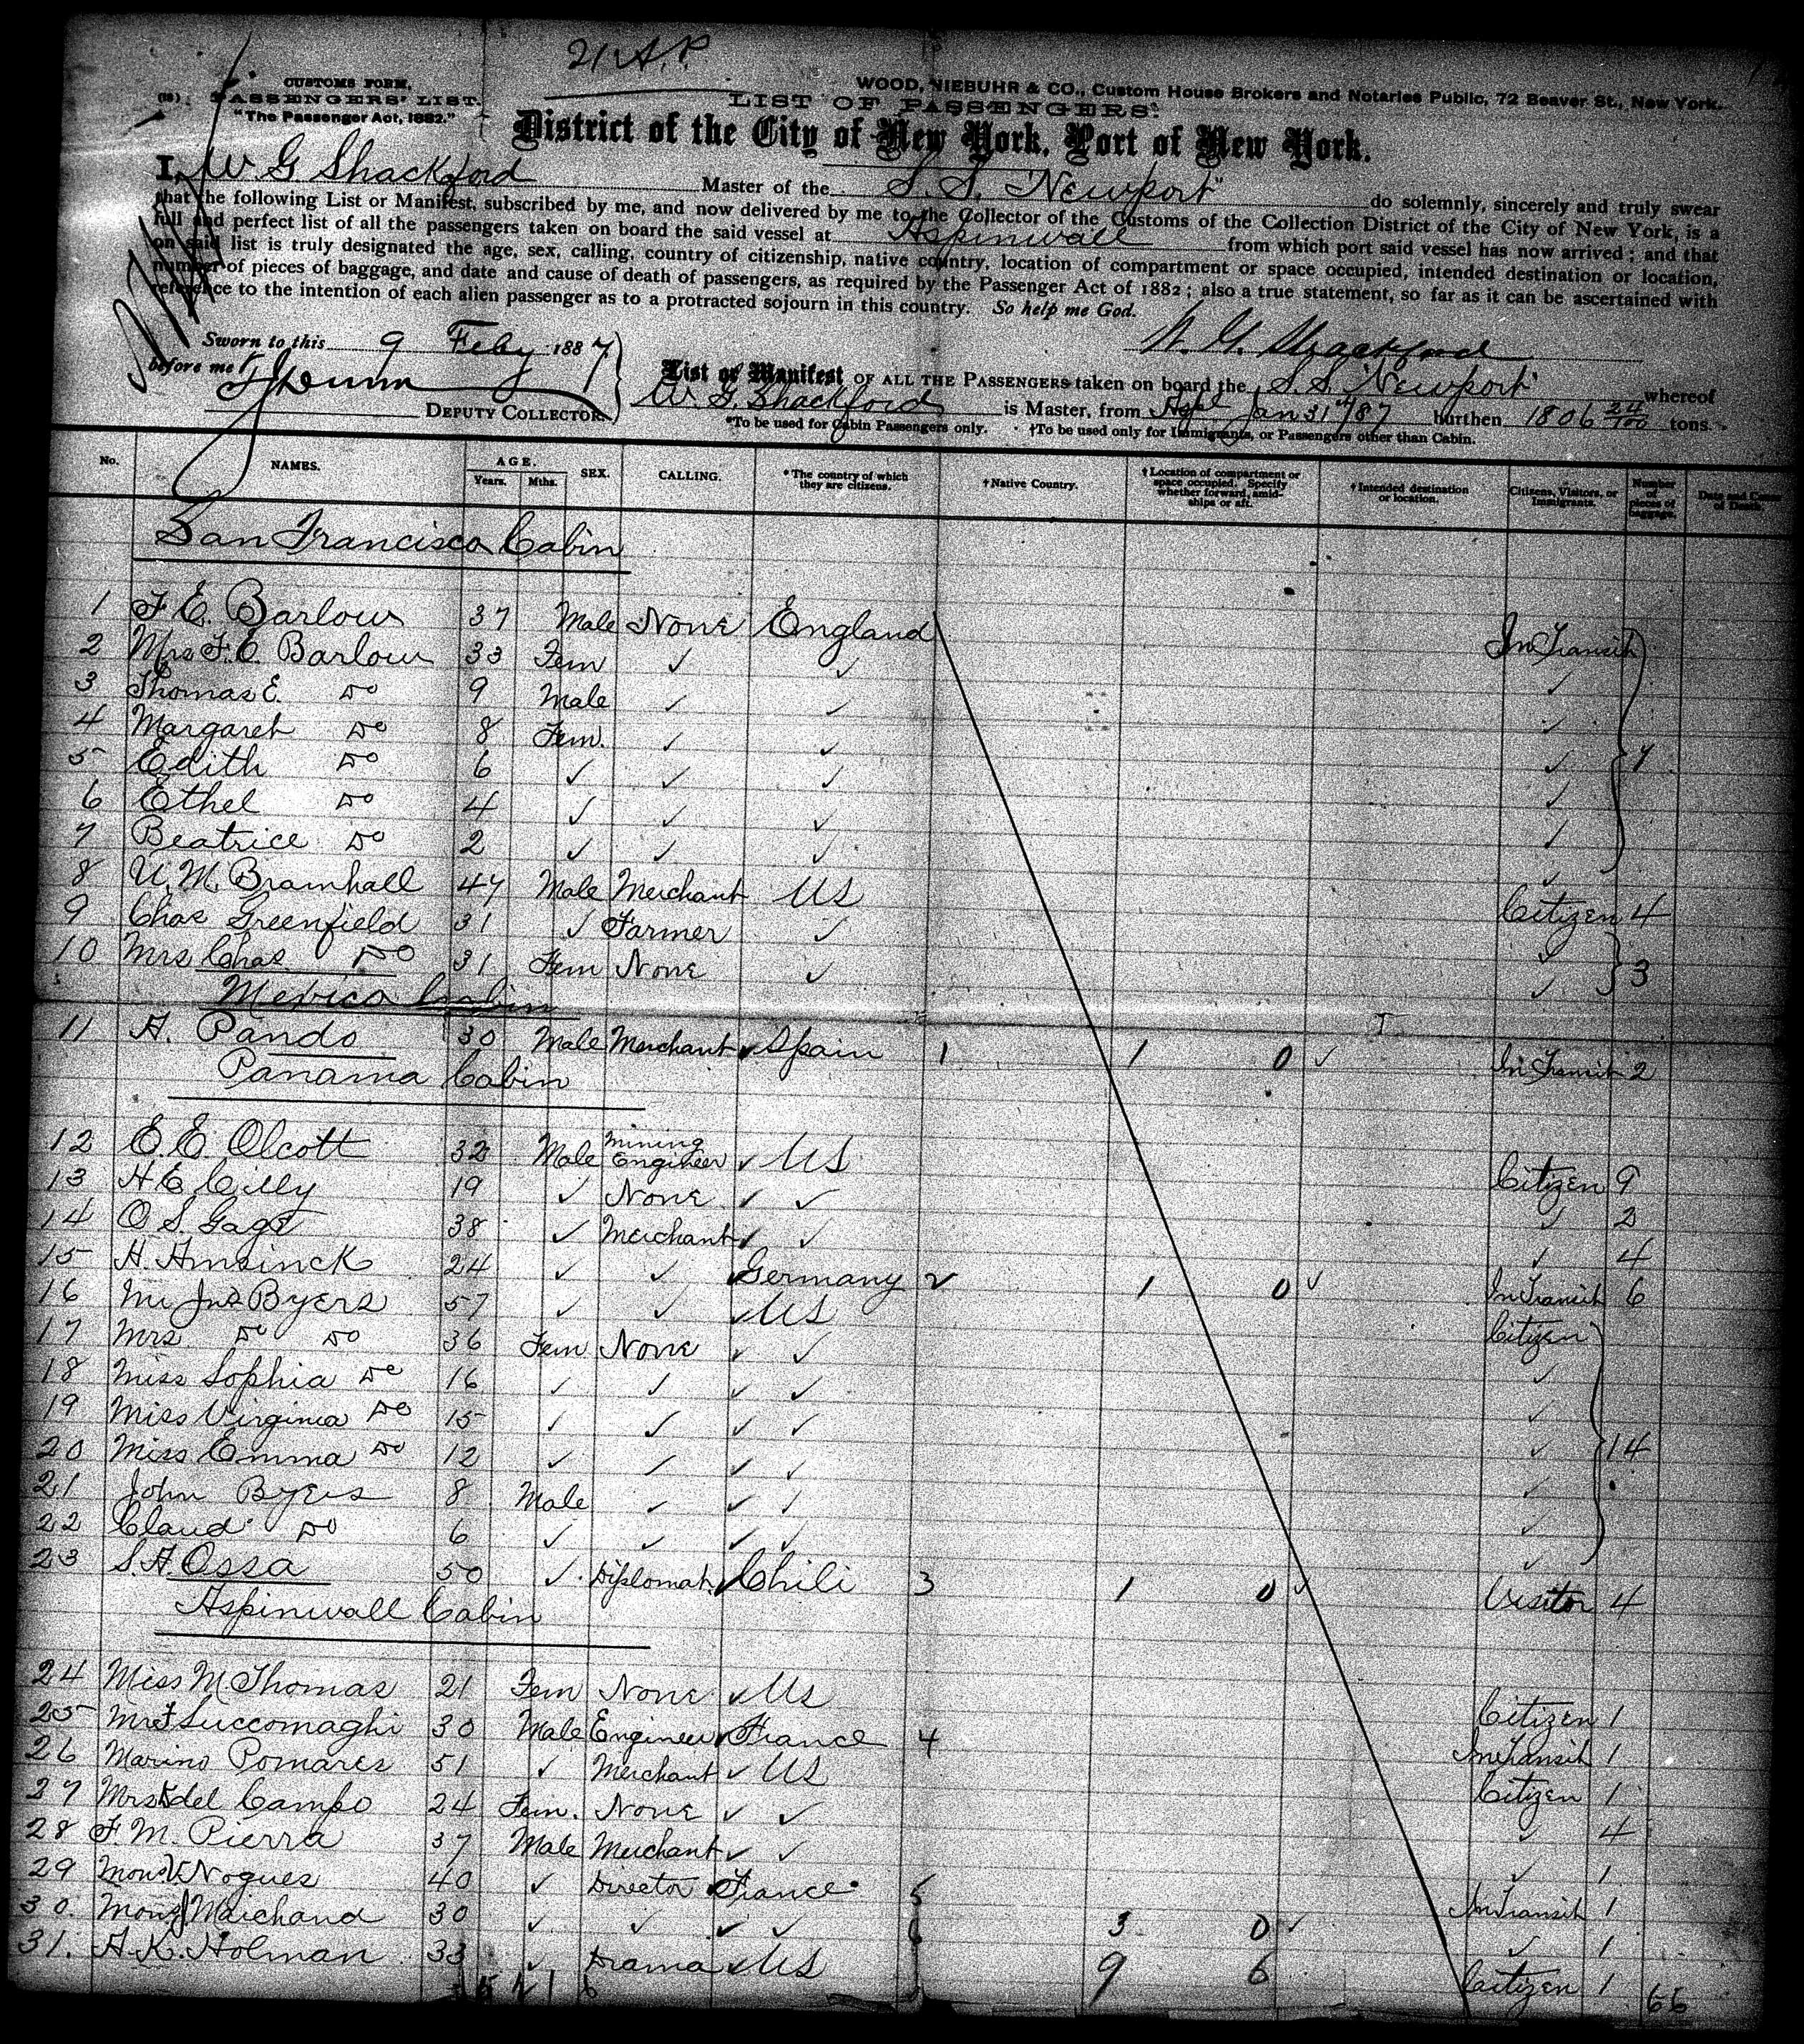 21 A.P.
CUSTOMS FORM,
PASSENGERS' LIST.
"The Passenger Act, 1882."
WOOD, NIEBUHR & CO., Custom House Brokers and Notaries Public, 72 Beaver St., New York.
LIST OF PASSENGERS.
District of the City of New York, Port of New York.
I, W G Shackford Master of the S. S. "Newport" do solemnly, sincerely and truly swear
that the following List or Manifest, subscribed by me, and now delivered by me to the Collector of the Customs of the Collection District of the City of New York, is a
full and perfect list of all the passengers taken on board the said vessel at Aspinwall from which port said vessel has now arrived; and that
on said list is truly designated the age, sex, calling, country of citizenship, native country, location of compartment or space occupied, intended destination or location,
number of pieces of baggage, and date and cause of death of passengers, as required by the Passenger Act of 1882; also a true statement, so far as it can be ascertained with
reference to the intention of each alien passenger as to a protracted sojourn in this country. So help me God.
W. G. Shackford
Sworn to this 9 Feby 1887
before me
DEPUTY COLLECTOR.
List or Manifest OF ALL THE PASSENGERS taken on board the S.S. "Newport" whereof
W. G. Shackford is Master, from Aspl Jan 31st/87 burthen 1806 24/100 tons.
*To be used for Cabin Passengers only. †To be used only for Immigrants, or Passengers other than Cabin.
No. NAMES. AGE. Years. Mths. SEX. CALLING. *The country of which they are citizens. †Native Country. †Location of compartment or space occupied. Specify whether forward, amidships or aft. †Intended destination or location. Citizens, Visitors, or Immigrants. Number of pieces of baggage. Date and Cause of Death.
San Francisco Cabin
1 F E. Barlow 37 Male None England In Transit
2 Mrs F. E. Barlow 33 Fem ✓ ✓ ✓
3 Thomas E. Do 9 Male ✓ ✓ ✓
4 Margaret Do 8 Fem. ✓ ✓ ✓ 7
5 Edith Do 6 ✓ ✓ ✓ ✓
6 Ethel Do 4 ✓ ✓ ✓ ✓
7 Beatrice Do 2 ✓ ✓ ✓ ✓
8 U. M. Bramhall 47 Male Merchant US Citizen 4
9 Chas Greenfield 31 ✓ Farmer ✓ ✓
10 Mrs Chas. Do 31 Fem None ✓ ✓ 3
Mexico Cabin
11 A. Pando 30 Male Merchant ✓ Spain 1 1 0 ✓ In Transit 2
Panama Cabin
12 E. E. Olcott 32 Male Mining Engineer ✓ US Citizen 9
13 H E Cilly 19 ✓ None ✓ ✓ ✓ 2
14 O. S. Gage 38 ✓ Merchant ✓ ✓ ✓ 4
15 H. Amsinck 24 ✓ ✓ ✓ Germany 2 1 0 ✓ In Transit 6
16 Mr Jno Byers 57 ✓ ✓ ✓ US Citizen
17 Mrs Do Do 36 Fem None ✓ ✓ ✓
18 Miss Sophia Do 16 ✓ ✓ ✓ ✓ ✓
19 Miss Virginia Do 15 ✓ ✓ ✓ ✓ ✓
20 Miss Emma Do 12 ✓ ✓ ✓ ✓ ✓ 14
21 John Byers 8 Male ✓ ✓ ✓ ✓
22 Claud Do 6 ✓ ✓ ✓ ✓ ✓
23 S. A. Ossa 50 ✓ Diplomat. ✓ Chili 3 1 0 ✓ Visitor 4
Aspinwall Cabin
24 Miss M. Thomas 21 Fem None ✓ US Citizen 1
25 Mr F Succomaghi 30 Male Engineer ✓ France 4 In Transit 1
26 Marino Pomares 51 ✓ Merchant ✓ US Citizen 1
27 Mrs del Campo 24 Fem. None ✓ ✓ ✓ 4
28 F. M. Pierra 37 Male Merchant ✓ ✓ ✓ 1
29 Mons Nogues 40 ✓ Director ✓ France 5 In Transit 1
30. Mons J Marchand 30 ✓ ✓ ✓ ✓ 6 3 0 ✓ ✓ 1
31. A. K. Holman 33 ✓ Drama ✓ US 9 6 Citizen 1
66